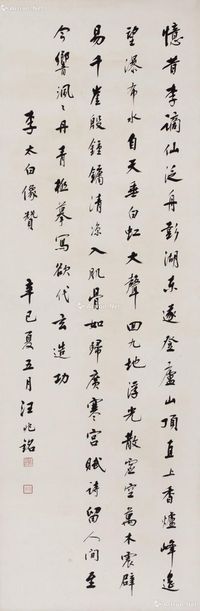 憶昔李謫仙泛舟彭湖東遂登廬山頂直上香爐峰遙
望瀑布水自天垂白虹大聲回九地浮光散虛空萬木震辟
易千崖殷鍾鏞清涼入肌骨如歸廣寒宮賦詩留人間至
今響渢渢丹青極摹寫欲代玄造功
李太白像贊
辛巳夏五月汪兆銘